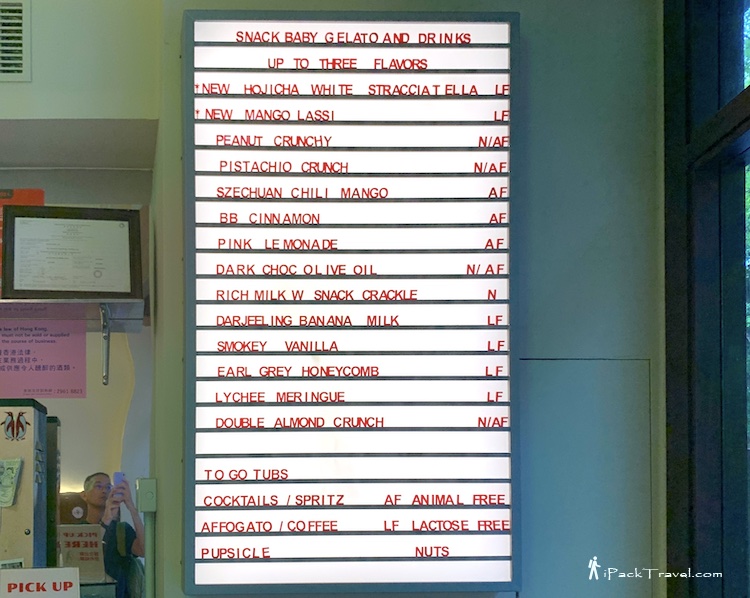 SNACK BABY GELATO AND DRINKS
UP TO THREE FLAVORS
*NEW HOJICHA WHITE STRACCIATELLA LF
*NEW MANGO LASSI LF
PEANUT CRUNCHY N/AF
PISTACHIO CRUNCH N/AF
SZECHUAN CHILI MANGO AF
BB CINNAMON AF
PINK LEMONADE AF
DARK CHOC OLIVE OIL N/AF
RICH MILK W SNACK CRACKLE N
DARJEELING BANANA MILK LF
SMOKEY VANILLA LF
EARL GREY HONEYCOMB LF
LYCHEE MERINGUE LF
DOUBLE ALMOND CRUNCH N/AF
TO GO TUBS
COCKTAILS / SPRITZ AF ANIMAL FREE
AFFOGATO / COFFEE LF LACTOSE FREE
PUPSICLE NUTS
law of Hong Kong,
must not be sold or supplied
the course of business.
香港法律，
業務過程中，
供應令人醺醉的酒類。
PICK UP
HERE
PICK UP
iPackTravel.com